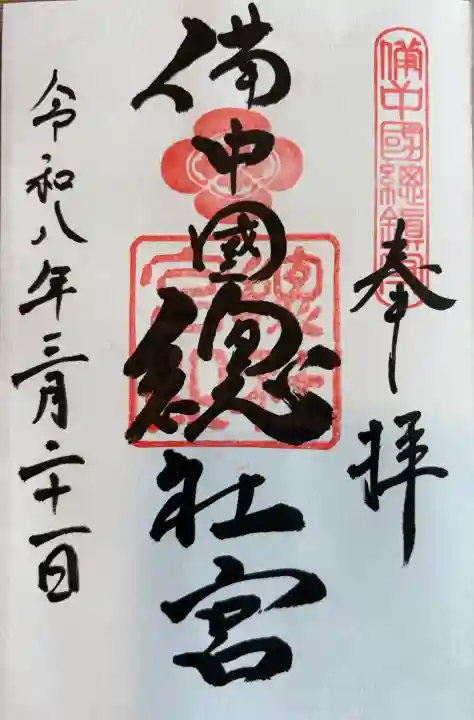 備中國總鎮守
奉拝
備中國總社宮
令和八年三月二十一日